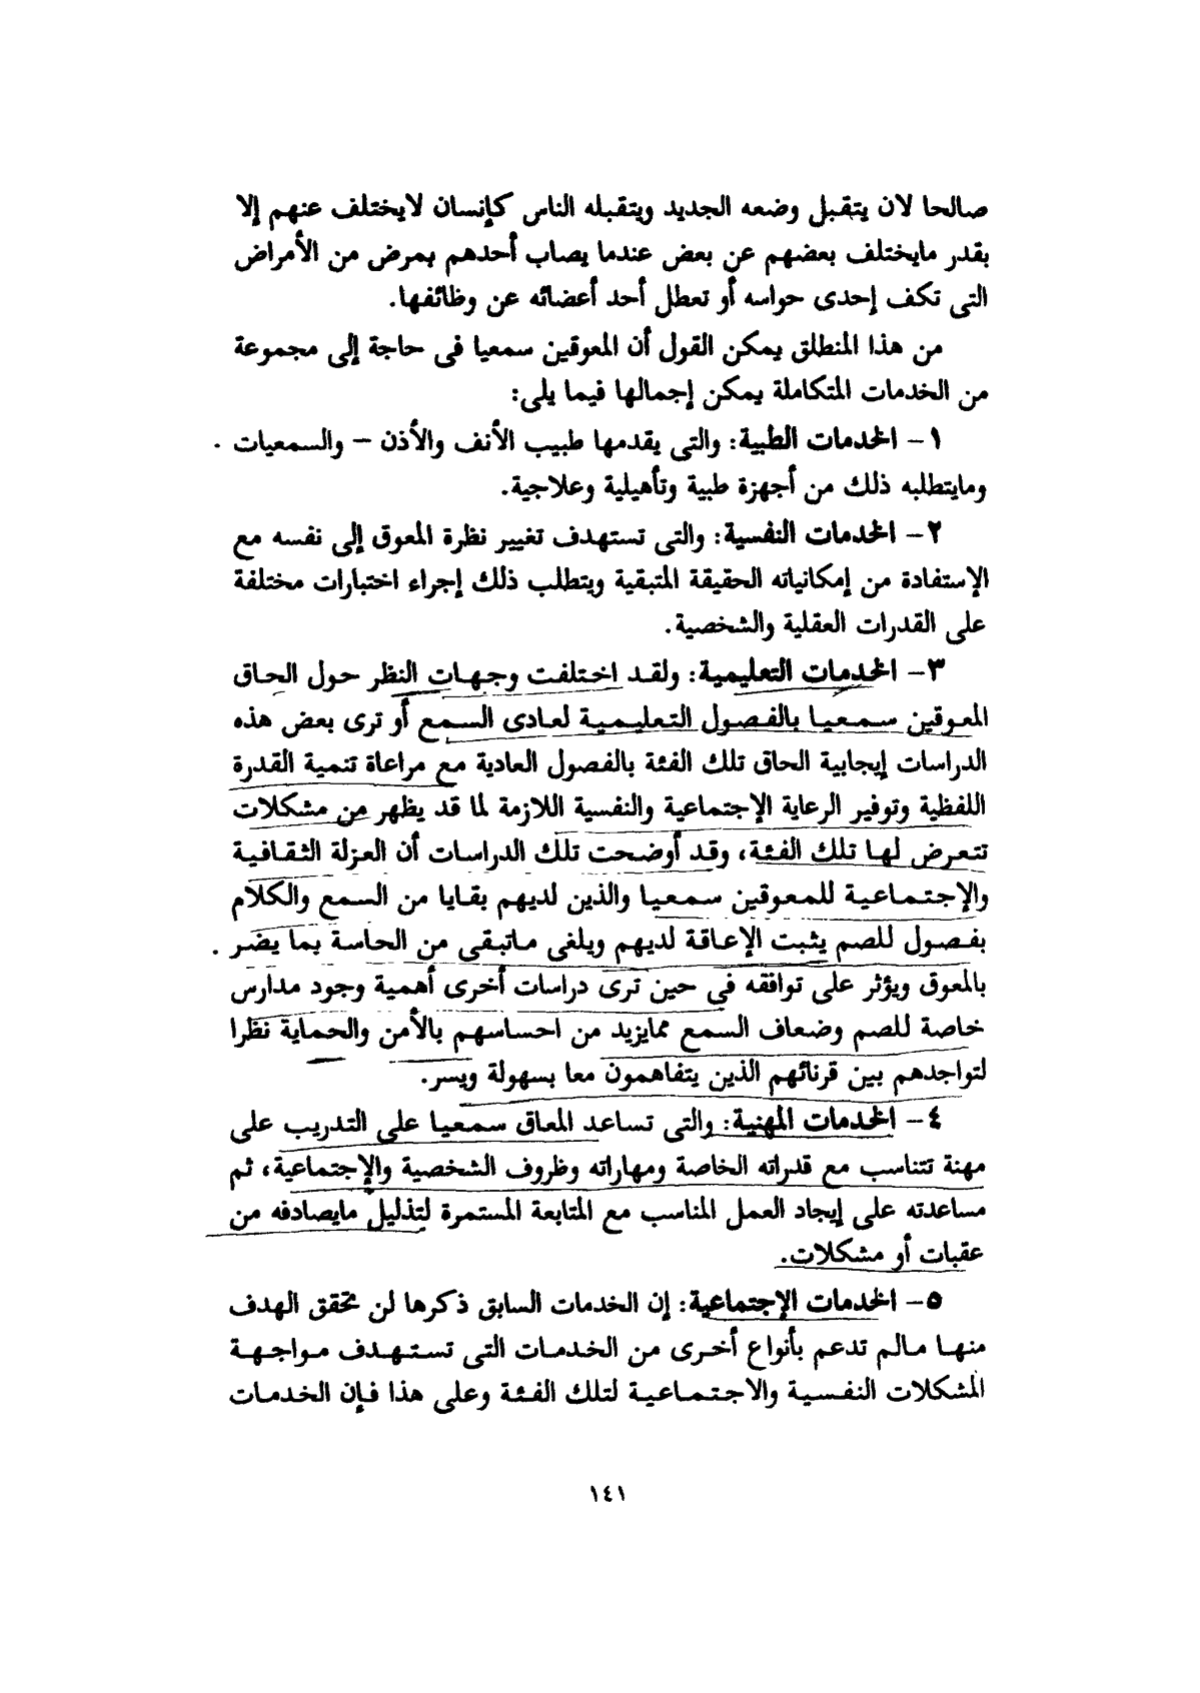 صالحا لان يتقبل وضعه الجديد ويتقبله الناس كإنسان لايختلف عنهم إلا
بقدر مايختلف بعضهم عن بعض عندما يصاب أحدهم بمرض من الأمراض
التى تكف إحدى حواسه أو تعطل أحد أعضائه عن وظائفها.
من هذا المنطلق يمكن القول أن المعوقين سمعيا فى حاجة إلى مجموعة
من الخدمات المتكاملة يمكن إجمالها فيما يلى:
١- الخدمات الطبية: والتى يقدمها طبيب الأنف والأذن – والسمعيات
ومايتطلبه ذلك من أجهزة طبية وتأهيلية وعلاجية.
٢- الخدمات النفسية: والتى تستهدف تغيير نظرة المعوق إلى نفسه مع
الإستفادة من إمكانياته الحقيقة المتبقية ويتطلب ذلك إجراء اختبارات مختلفة
على القدرات العقلية والشخصية.
٣- الخدمات التعليمية: ولقد اختلفت وجهات النظر حول الحاق
المعوقين سمعيا بالفصول التعليمية لعادى السمع أو ترى بعض هذه
الدراسات إيجابية الحاق تلك الفئة بالفصول العادية مع مراعاة تنمية القدرة
اللفظية وتوفير الرعاية الإجتماعية والنفسية اللازمة لما قد يظهر من مشكلات
تتعرض لها تلك الفئة، وقد أوضحت تلك الدراسات أن العزلة الثقافية
والإجتماعية للمعوقين سمعيا والذين لديهم بقايا من السمع والكلام
بفصول للصم يثبت الإعاقة لديهم ويلغى ماتبقى من الحاسة بما يضر
بالمعوق ويؤثر على توافقه فى حين ترى دراسات أخرى أهمية وجود مدارس
خاصة للصم وضعاف السمع ممايزيد من احساسهم بالأمن والحماية نظرا
لتواجدهم بين قرنائهم الذين يتفاهمون معا بسهولة ويسر.
٤- الخدمات المهنية: والتى تساعد المعاق سمعيا على التدريب على
مهنة تتناسب مع قدراته الخاصة ومهاراته وظروف الشخصية والإجتماعية، ثم
مساعدته على إيجاد العمل المناسب مع المتابعة المستمرة لتذليل مايصادفه من
عقبات أو مشكلات.
٥- الخدمات الإجتماعية: إن الخدمات السابق ذكرها لن تحقق الهدف
منها مالم تدعم بأنواع أخرى من الخدمات التى تستهدف مواجهة
المشكلات النفسية والاجتماعية لتلك الفئة وعلى هذا فإن الخدمات
١٤١